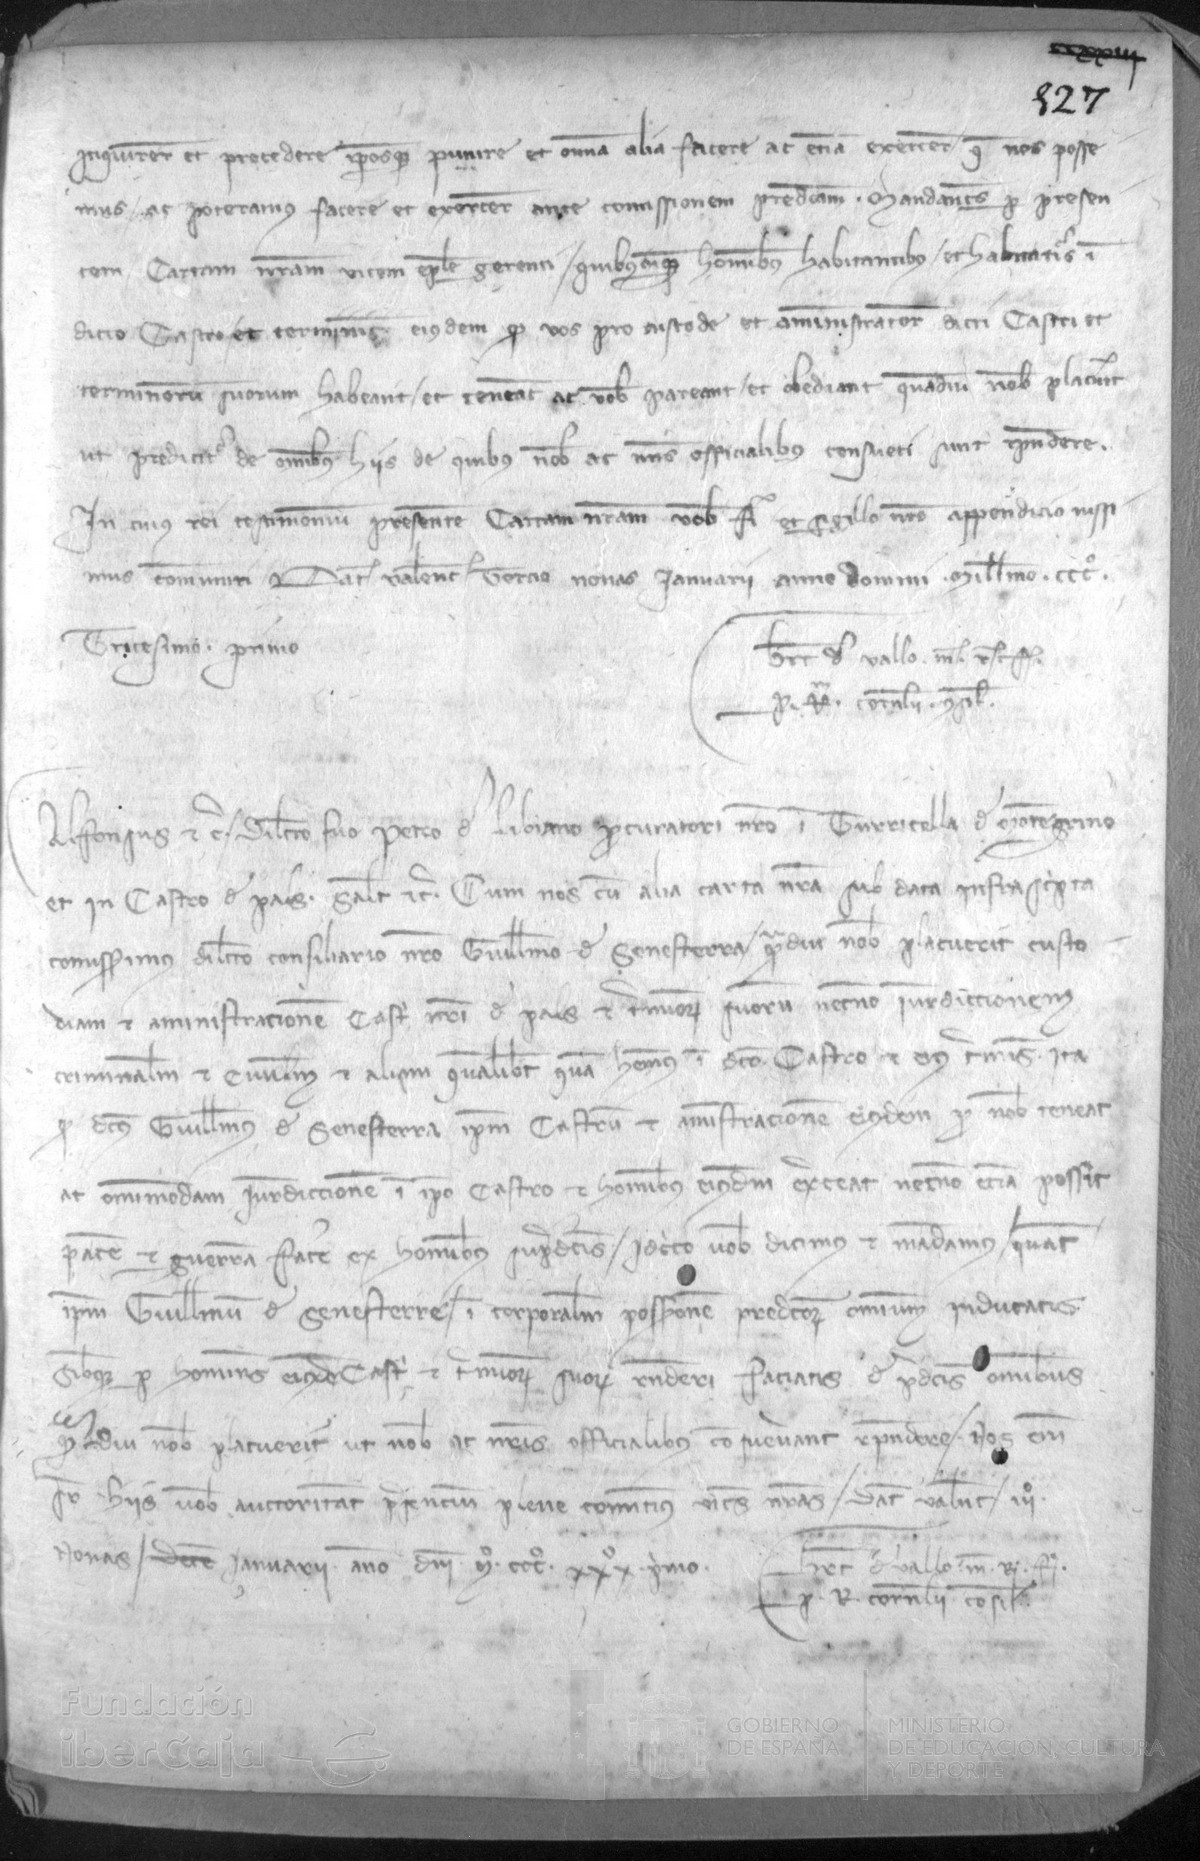 127
inquirere et procedere ip̄osq̨ punire et om̄ia alia facere ac etiā exercere q̄ nos posse
mus / ac poteramus facere et exercere ante comissionem predc̄am. Mandantes ꝑ presen
tem Cartam nr̄am vicem ep̄le gerenti / quibuscūq̨ hominibus habitantibus / et habitaturis ī
dicto Castro / et terminis eiusdem ꝙ vos pro custode et administratore dicti Castri et
terminorū suorum habeant / et teneāt ac vob̄ pareant / et obediant quādiu nob̄ placuit̄
ut predicit̄ de omībus hiis de quibus nob̄ ac nr̄is officialibus consueti sunt rn̄dere.
In cuius rei testimoniū presentē Cartam nr̄am vob̄ fi et sigillo nr̄o appendicio iussi
mus com̄uniri Dat̄ valent̄ Tercio nonas Januarii anno domini Mill̄mo ccc̊.
Tricesimo primo
de vallo
Cornelii
Alfonsus et c̄. / Dilc̄o suo Petro d̄ Libiano procuratori nr̄o ī Turricella d̄ Montegrino
et in Castro d̄ pals. Salt̄ etc̄. Cum nos cū alia carta nr̄a sub data infrascripta
comissimus dilc̄o consiliario nr̄o Guillmo d̄ Senesterra / q̄mdiu nob̄ placuerit custo
diam et aministracionē Castri nr̄i d̄ pals et t̄minorum suorū necno iurdiccionem
criminalem et civilem et aliam qualībt quā hemus ī dc̄o Castro et eius t̄minis. Ita
ꝙ dc̄us Guillmus d̄ Senesterra ip̄m Castrū et aministracionē eiusdem ꝑ nob̄ teneat
ac omimodam iurdiccionē ī ip̄o Castro et homībus eiusdem exerceat necno etiā possit
pacē et guerrā facē ex homībus supradc̄is / Idcirco vob̄ dicimus et mādamus / quat̄
ip̄m Guillmū d̄ Senesterre / ī corporalem possessionē predc̄orum omnium inducatis
Sibiq̨ ꝑ homines eiusdē Castri et t̄minorum suorum rn̄deri faciatis d̄ p̄dc̄is omībus
q̄mdiu nob̄ placuerit ut nob̄ ac nr̄is officialibus consueverant rn̄dere / Nos em̄
sr̄ hiis vob̄ auctoritate presencium plene comitimus vices nr̄as / Dat̄ valent̄ / iii̊.
Nonas / Januarii. anno dn̄i m̊. ccc̊. xxx̊. primo.
de vallo
p. R. Cornelii consil.
Fundación
iberCaja
GOBIERNO
DE ESPAÑA
MINISTERIO
DE EDUCACIÓN, CULTURA
Y DEPORTE